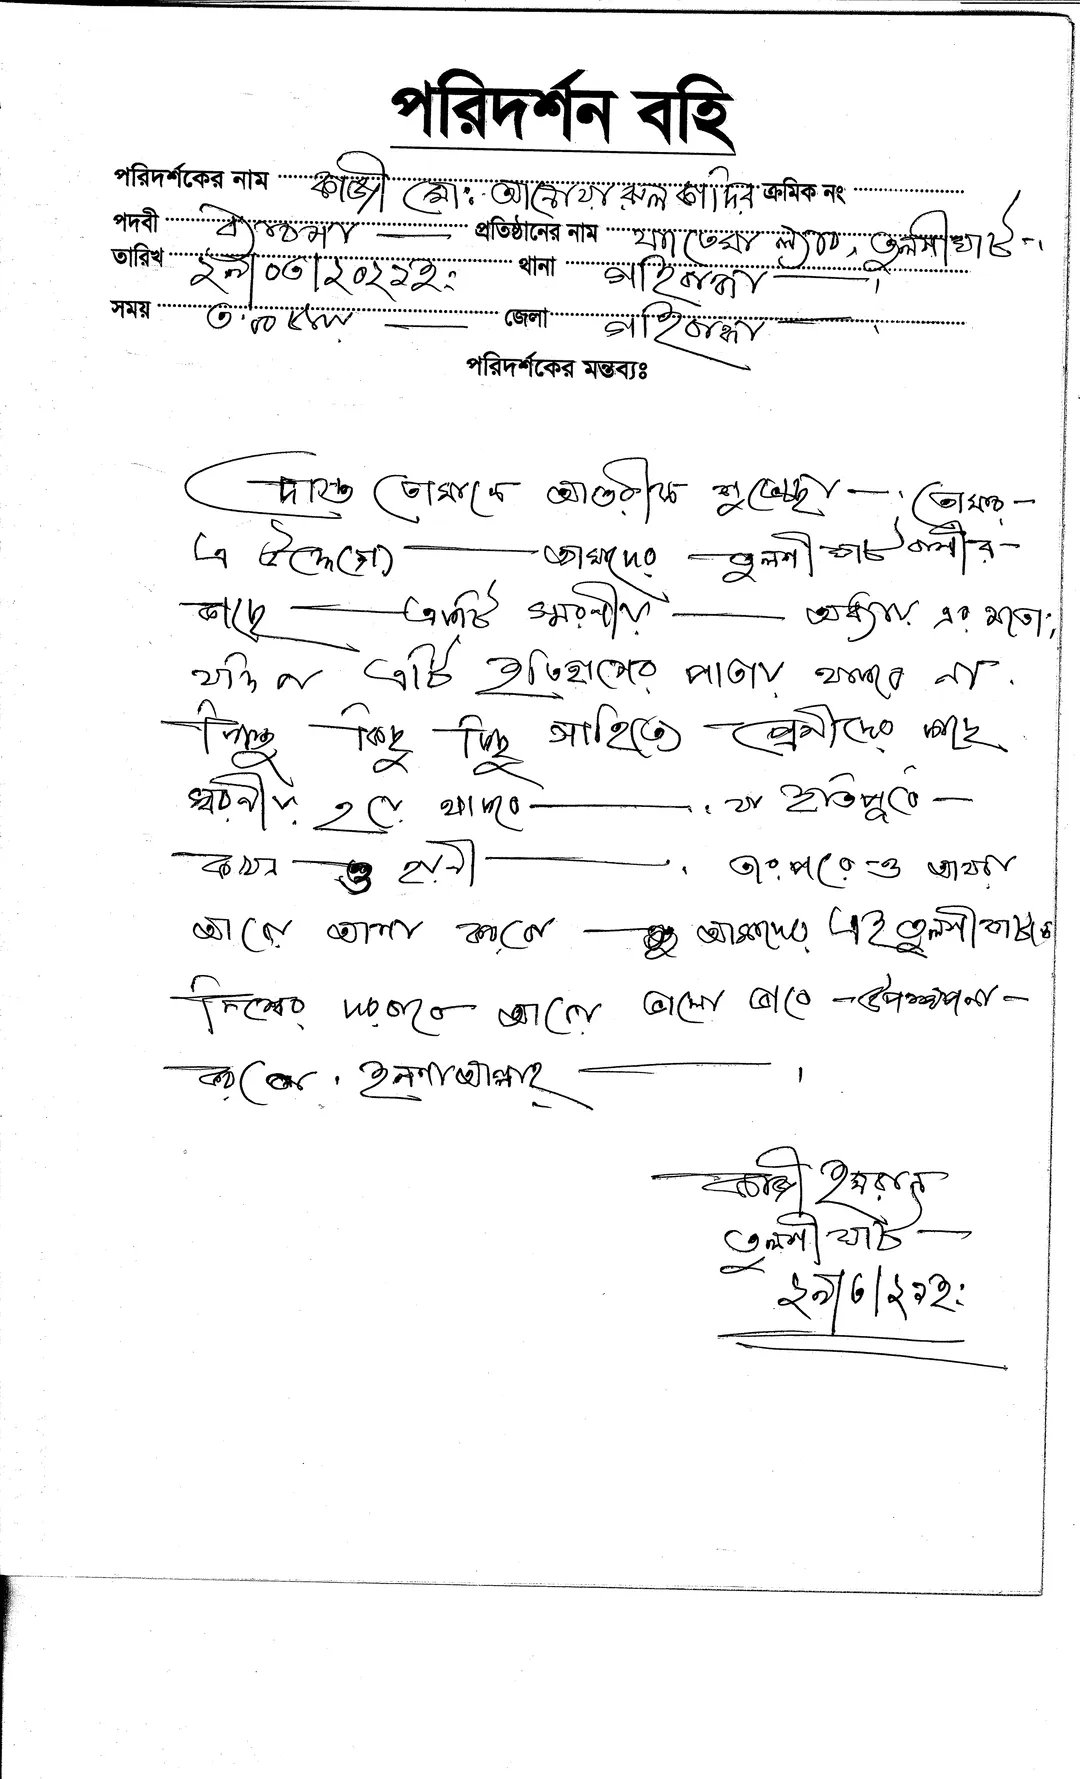 পরিদর্শন বহি
পরিদর্শকের নাম কাজী মোঃ আনোয়ারুল কাদির ক্রমিক নং
পদবী ব্যবসা প্রতিষ্ঠানের নাম ফাতেমা ল্যাব, তুলসীঘাট
তারিখ ২৯/০৩/২০২২ইং থানা গাইবান্ধা
সময় ৩.০০ জেলা গাইবান্ধা
পরিদর্শকের মন্তব্যঃ
দোস্ত তোমাকে আন্তরীক শুভেচ্ছা। তোমার
এ উদ্দ্যেগ আমাদের তুলশীঘাট বাসীর
কাছে একটি স্মরনীয় অধ্যায় এর মতো,
যদিও বা এটি ইতিহাসের পাতায় থাকবে না
কিন্তু কিছু কিছু সাহিত্যে প্রেমীদের কাছে
স্মরনীয় হয়ে থাকবে। যা ইতিপূর্বে
কখনও হয়নী। তারপরেও আমরা
আরো আশা করবো আমাদের এই তুলসীঘাটকে
বিশ্বের দরবারে আরো ভালো ভাবে উপস্থাপনা
করবো। ইনশাআল্লাহ্।
কাজী ইমরান
তুলশীঘাট
২৯/৩/২২ইং